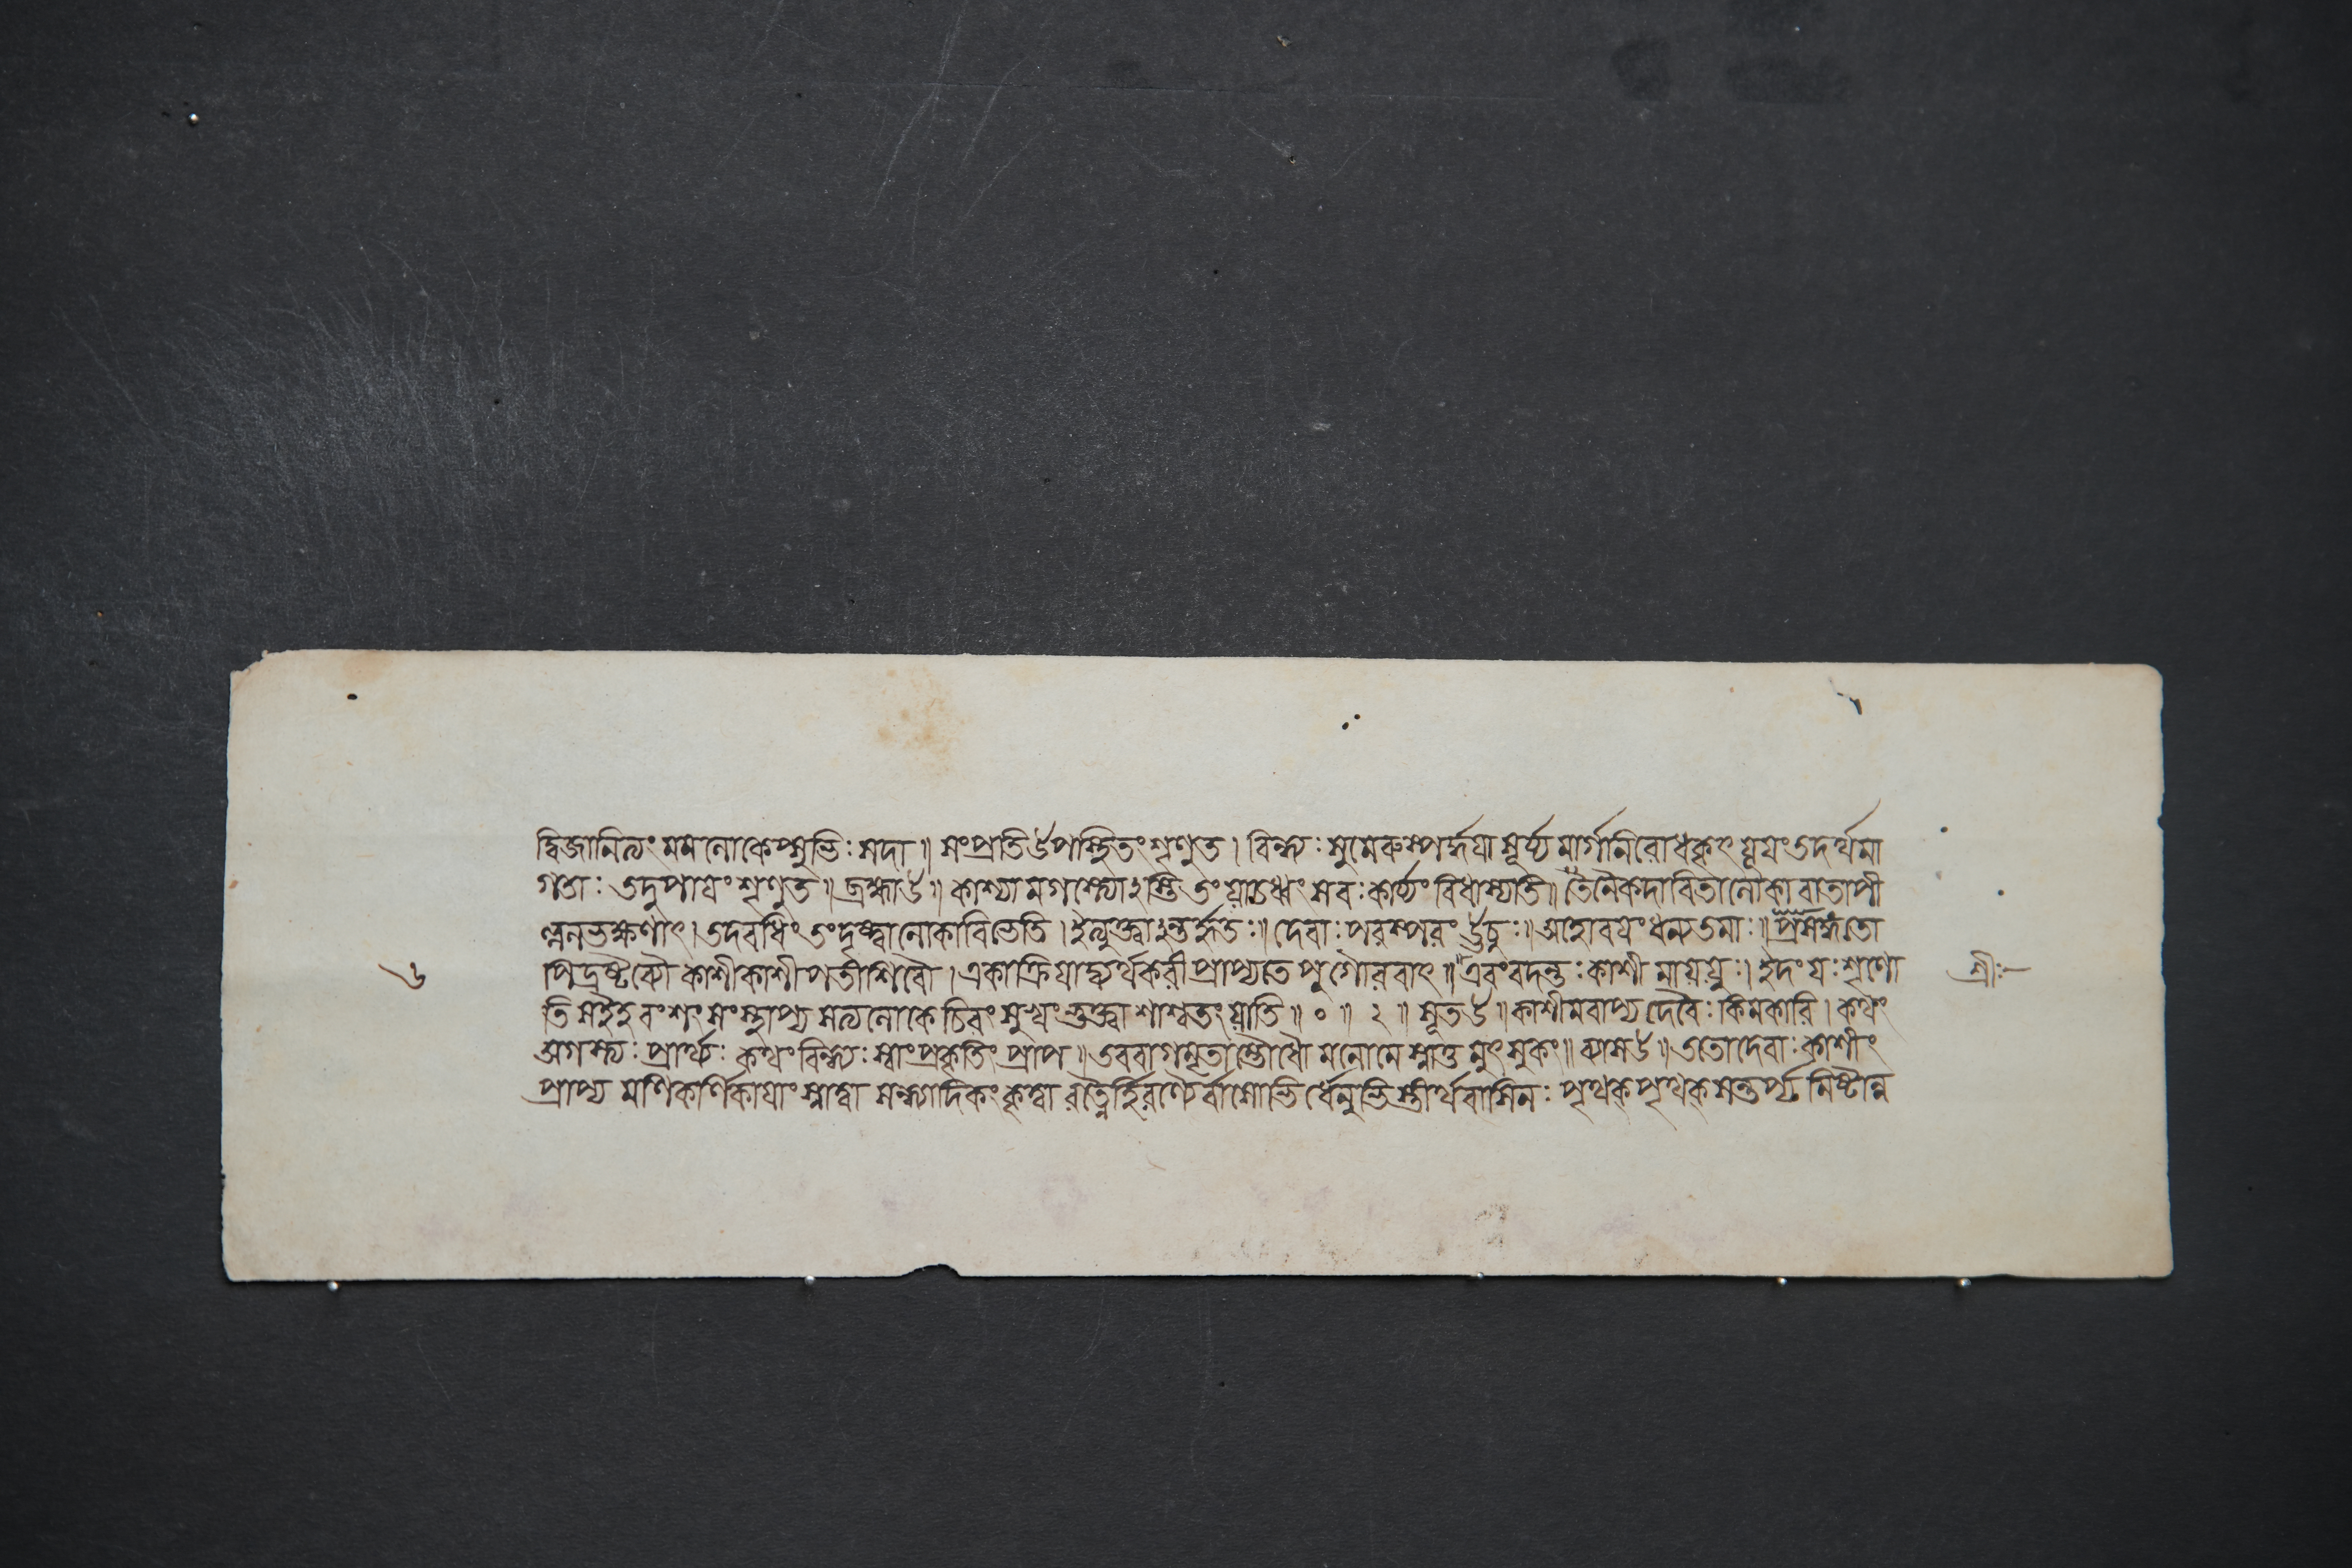 দ্বিজানিত্যং মমলোকেপ্সুভিঃ সদা॥ সংপ্রতি উপস্থিতং শৃণুত। বিন্ধ্যঃ সুমেরুস্পর্দ্ধয়া সূর্য্য মার্গানিরোধকৃৎ যূয়ং তদর্থমা
গতাঃ তদুপায়ং শৃণুত॥ ব্রহ্মা উ॥ কাশ্যামগস্ত্যোঽস্তি তং যাচধ্বং সবঃ কার্য্যং বিধাস্যতি॥ তেনৈকদাবিতালোকাবাতাপী
ল্বলভক্ষণাৎ। তদবধিং তংদৃষ্ট্বালোকাবিভেতি। ইত্যুক্ত্বাঽন্তর্হিতঃ॥ দেবাঃ পরস্পরং ঊচুঃ॥ অহোবয়ং ধন্যতমাঃ॥
পিদ্রষ্টব্যৌ কাশীকাশীপতীশিবৌ। একাক্রিয়াদ্ব্যর্থকরী প্রাপ্যতে পুগৌরবাৎ॥ এবংবদন্তঃ কাশী মায়যুঃ। ইদং যঃ শৃণো
৬
শ্রীঃ
তি সংস্থাপ্য সত্যলোকে চিরং সুখং ভুক্ত্বা শাশ্বতং যাতি॥ ০॥ ২॥ সূত উ॥ কাশীমবাপ্য দেবৈঃ কিমকারি। কথং
অগস্ত্যঃ প্রার্থ্যঃ কথং বিন্ধ্যঃ স্বাং প্রকৃতিং প্রাপ॥ তববাগমৃতাম্ভোধৌ মনোমে স্নাতু মুৎসুকং॥ ব্যাস উ॥ ততোদেবাঃ কাশীং
প্রাপ্য মণিকর্ণিকায়াং স্নাত্বা সন্ধ্যাদিকং কৃত্বা রত্নৈর্হিরণ্যৈর্বাসোভির্ধেনুভিস্তীর্থবাসিনঃ পৃথক্পৃথক্সন্তর্প্য মিষ্টান্ন